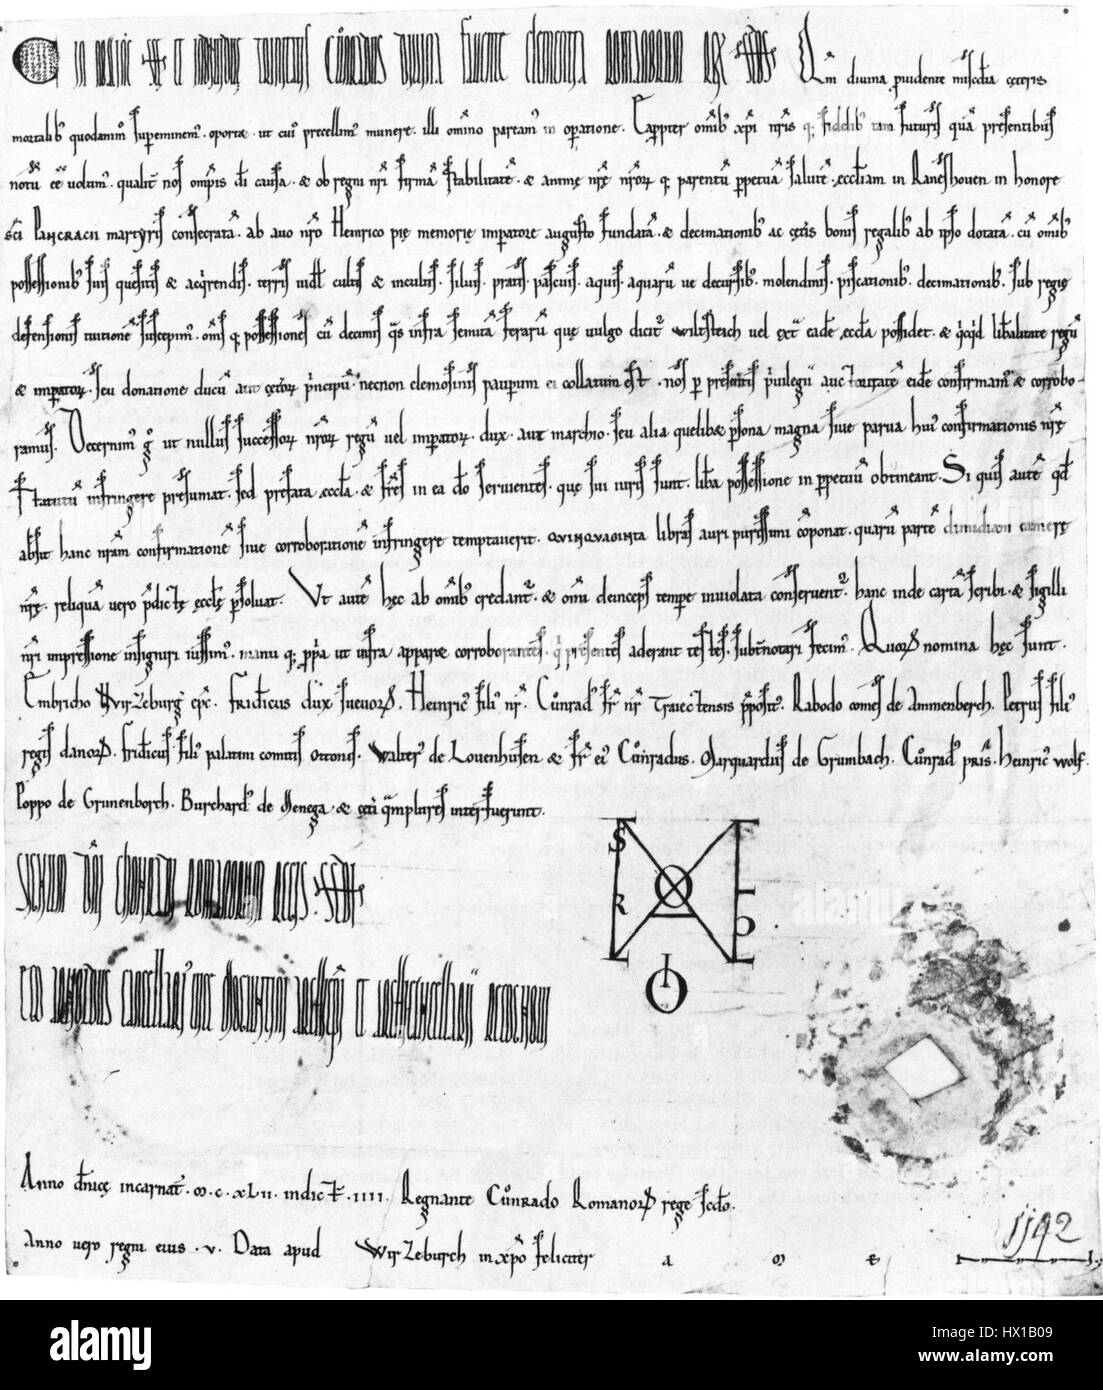 C In nomine sanctę et individuę trinitatis Cůnradus divina favente clementia romanorum rex secundus Qm̄ divina p̱vidente misc̄dia cęteris
mortalib; quodāmm̄ sup̱eminem̄. oportæ. ut cui᾽ precellim̄ munere. illi om̄ino paream̄ in op̱atione. Eapp̱ter om̄ib; xp̄i nr̄isq; fidelib; tam futuris quā presentib;
notū eē volum̄. qualit̄ nos om̄p̄tis dī causa. & ob regni nr̄i firmā stabilitatē. & animę nr̄ę nr̄orūq; parentū p̱petuā salutē. ęccl̄iam in Raneshoven in honore
sc̄i PANCRACII martyris consecratā. ab avo nr̄o Heinrico pię memorię imperatore augusto fundatā. & decimationib; ac cęt̄is bonis regalib; ab ip̄so dotatā. cū om̄ib;
possessionib; suis quesitis & acq̄rendis. terris vidl̄ cultis & incultis. silvis. pratis. pascuis. aquis. aquarū ve decursib;. molendinis. piscationib;. decimationib;. sub regię
defensionis tuitionē suscepim̄. om̄sq; possessiones cū decimis q̄s infra semitā ferarū quę vulgo dicit̄ wiltstech vel ext̄ eadē ęccl̄a possidet. & q̄cq̄d lib̄alitate regū
& imp̱atorū. seu donatione ducū aut cęt̄orū p̄ncipū. necnon elemosinis paup̱um ei collatum est. nos p̱ presentis p̄vilegii auctoritatē eidē confirmam̄ & corrobo-
ramus. Decernim̄ g̊ ut nullus successorū nr̄orū regū vel imp̱atorū. dux. aut marchio. seu alia quelibæ p̱sona magna sive parva hui᾽ confirmationis nr̄ę
statutū infringere presumat. sed prefata ęccl̄a. & fr̄es in ea dō servientes. quę sui iuris sunt. lib̄a possessione in p̱petuū obtineant. Si quis autē qd̄
absit hanc nr̄am confirmationē sive corroborationē infringere temptaverit. QVINQVAGINTA libras auri purissimi cōponat. quarū partē dimidiam camerę
nr̄ę. reliquā vero p̄dictę ęccl̄ę p̱solvat. Ut autē hęc ab om̄ib; credant̄. & om̄i deinceps tempe inviolata conservent̄. hanc inde cartā scribi. & sigilli
nr̄i impressione insigniri iussim̄. manuq; p̱p̄a ut infra apparæ corroborantes. q̄ presentes aderant testes. subt̄notari fecim̄. Quorū nomina hęc sunt.
Embricho Wirzeburḡ ep̄c. Frid̄icus dux suevorū. Heinric᾽ fili᾽ nr̄. Cůnrad᾽ fr̄ nr̄ Traiectensis p̄posit᾽. Rabodo comes de Ammenberch. Petrus fili᾽
regis danorū. frid̄icus fili᾽ palatini comitis ottonis. Walter᾽ de Lovenhusen & fr̄ ei᾽ Cůnradus. Marquardus de Grumbach. Cůnrad᾽ pris. heinric᾽ wolf.
Poppo de Grunenborch. Burchard᾽ de Menega & cęt̄i q̄mplures interfuerunt.
Signum dn̄i Chonradi romanorum regis secundi
S R T O I O
Ego Arnoldus cancellari᾽ vice Moguntini archiep̄i et archicancellarii recognovi
Anno dn̄icę incarnat̄. M. C. XLII. indict̄. IIII. Regnante Cůnrado Romanorū rege sc̄do.
Anno vero regni eius. V. Data apud Wirzeburch in xp̄o feliciter A M E N
1142
alamy
Image ID: HX1B09
www.alamy.com